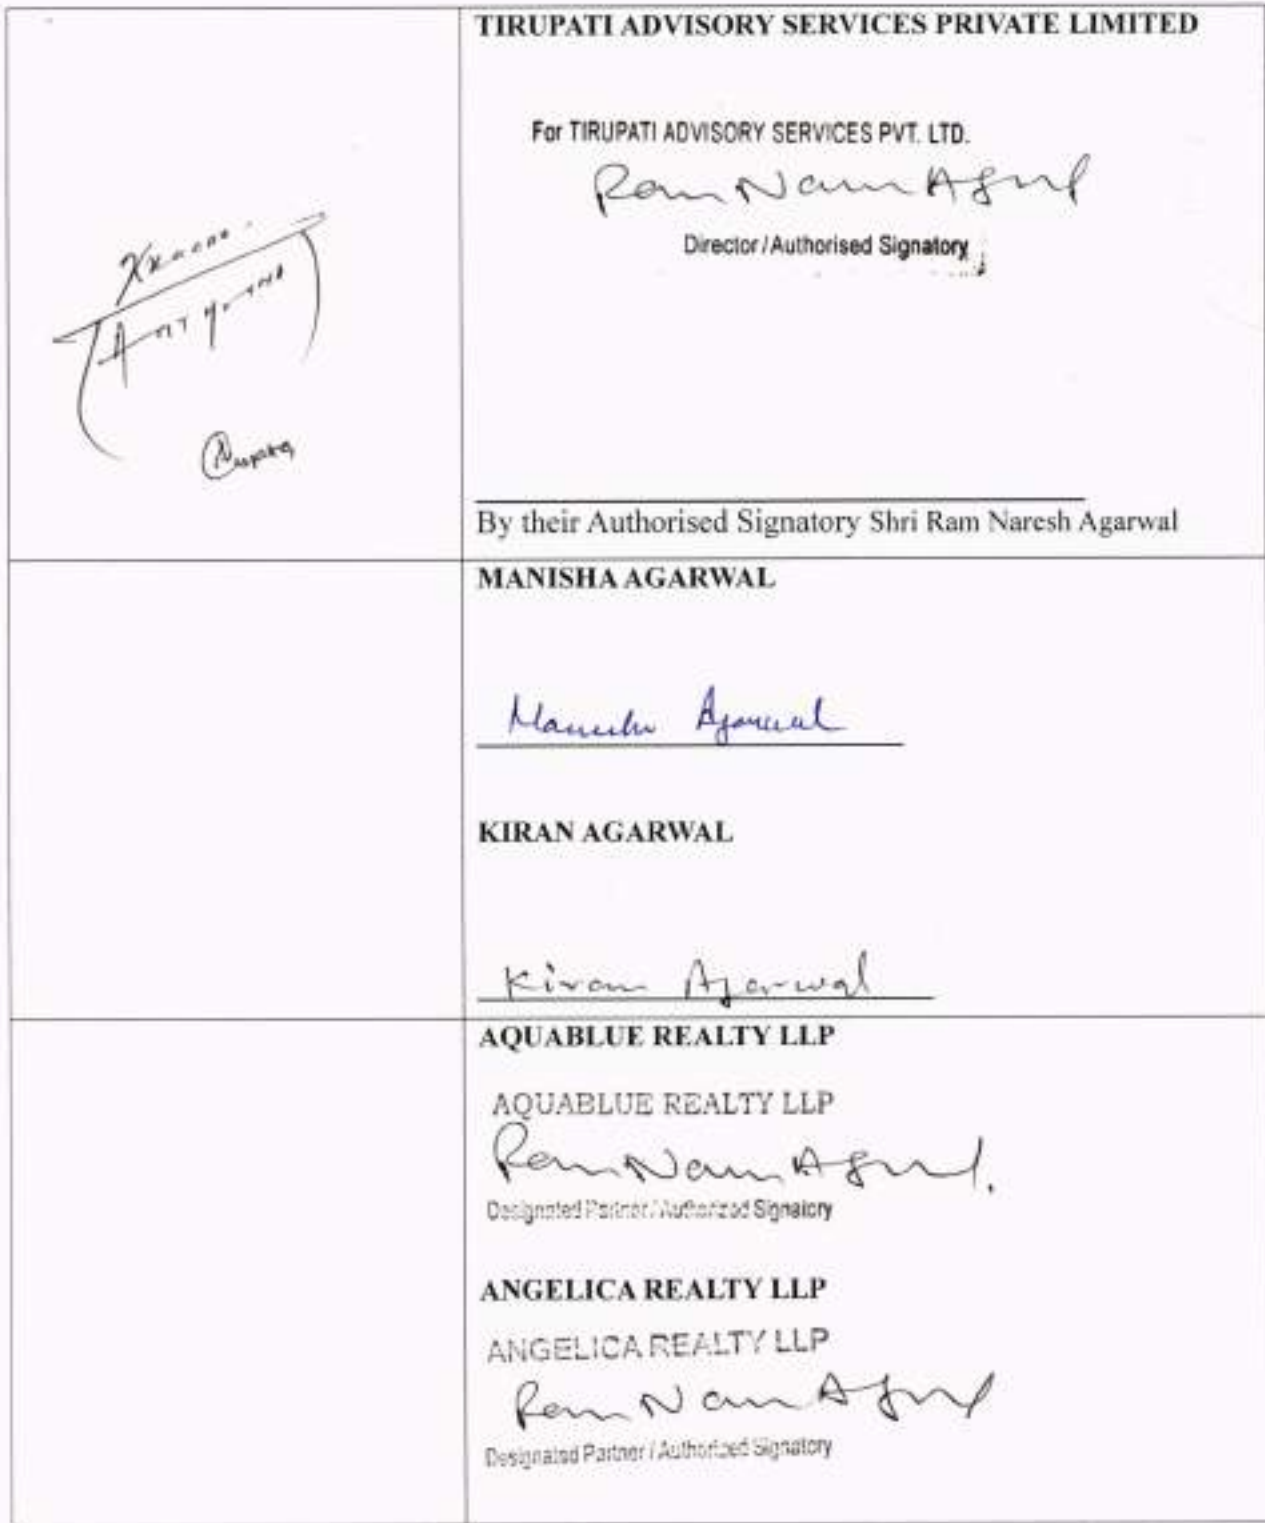 TIRUPATI ADVISORY SERVICES PRIVATE LIMITED
For TIRUPATI ADVISORY SERVICES PVT. LTD.
Director / Authorised Signatory
By their Authorised Signatory Shri Ram Naresh Agarwal
MANISHA AGARWAL
Manisha Agarwal
KIRAN AGARWAL
Kiran Agarwal
AQUABLUE REALTY LLP
AQUABLUE REALTY LLP
Designated Partner / Authorized Signatory
ANGELICA REALTY LLP
ANGELICA REALTY LLP
Designated Partner / Authorized Signatory